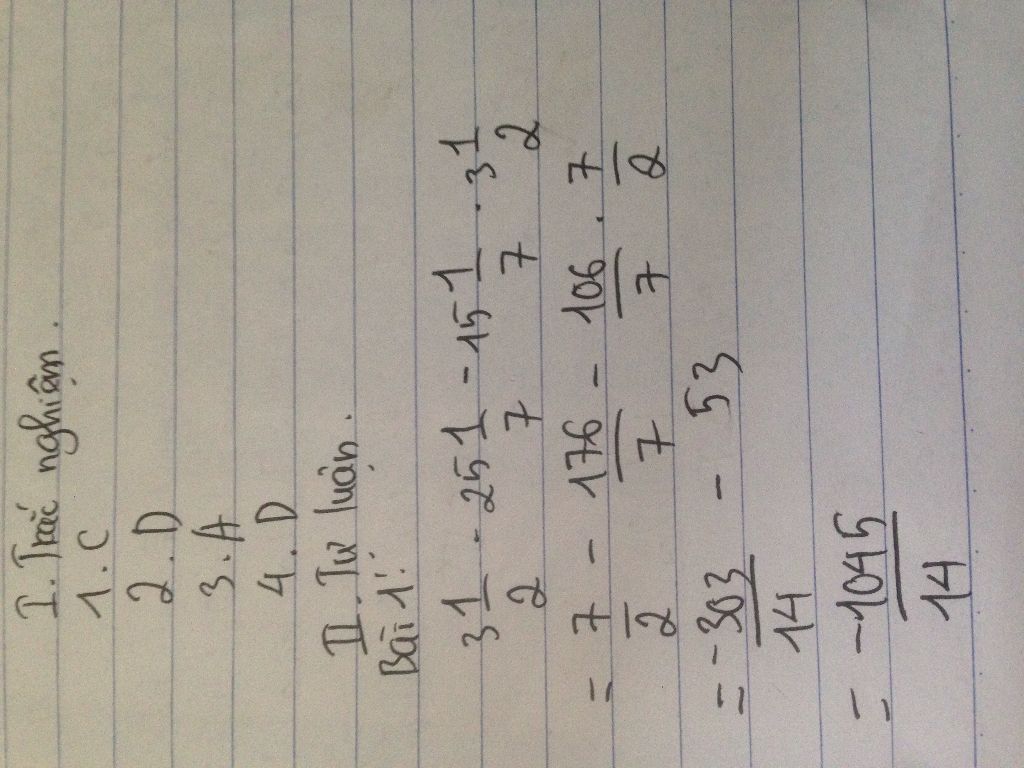 I. Trắc nghiệm.
1. C
2. D
3. A
4. D
II. Tự luận.
Bài 1:
3 1/2 - 25 1/7 - 15 1/7 . 3 1/2
= 7/2 - 176/7 - 106/7 . 7/2
= -303/14 - 53
= -1045/14